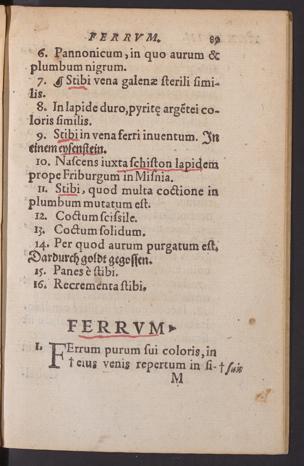 FERRVM. 89
6. Pannonicum, in quo aurum &
plumbum nigrum.
7. ¶ Stibi vena galenæ sterili simi-
lis.
8. In lapide duro, pyritę argẽtei co-
loris similis.
9. Stibi in vena ferri inuentum. In
einem eysenstein.
10. Nascens iuxta schiston lapidem
prope Friburgum in Misnia.
11. Stibi, quod multa coctione in
plumbum mutatum est.
12. Coctum scissile.
13. Coctum solidum.
14. Per quod aurum purgatum est.
Dardurch goldt gegossen.
15. Panes è stibi.
16. Recrementa stibi.
FERRVM
1. FErrum purum sui coloris, in
† eius venis repertum in si- † suis
M